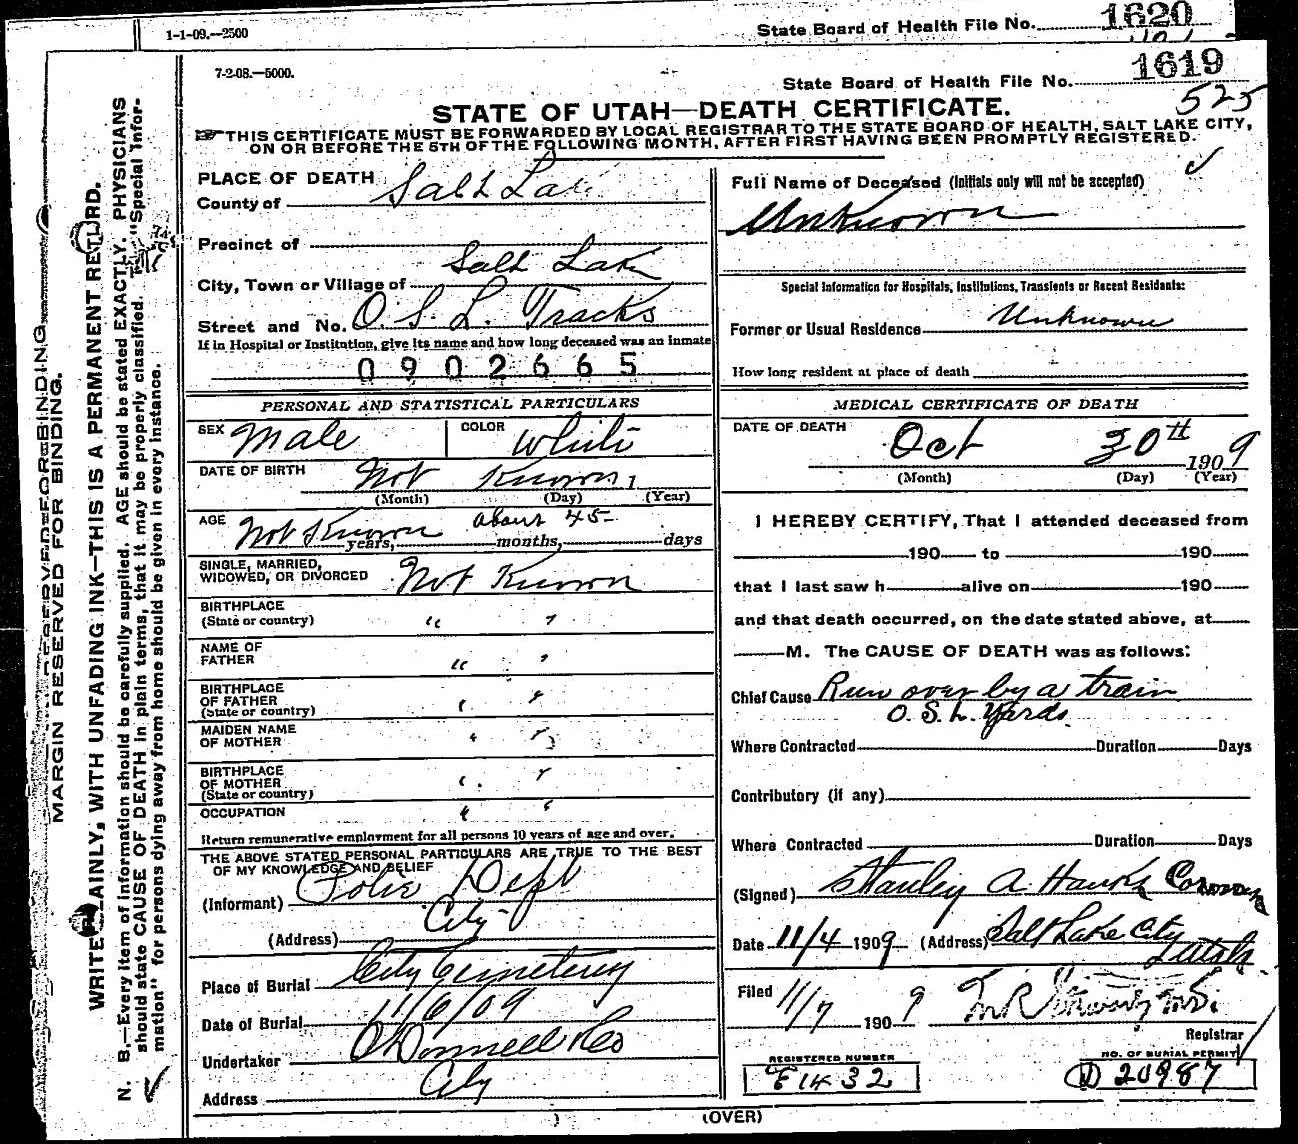 1-1-09.—2500
State Board of Health File No. 1620
7-2-08.—5000.
State Board of Health File No. 1619
525
STATE OF UTAH—DEATH CERTIFICATE.
THIS CERTIFICATE MUST BE FORWARDED BY LOCAL REGISTRAR TO THE STATE BOARD OF HEALTH, SALT LAKE CITY,
ON OR BEFORE THE 5TH OF THE FOLLOWING MONTH, AFTER FIRST HAVING BEEN PROMPTLY REGISTERED.
MARGIN RESERVED FOR BINDING.
WRITE PLAINLY, WITH UNFADING INK—THIS IS A PERMANENT RECORD.
N. B.—Every item of information should be carefully supplied. AGE should be stated EXACTLY. PHYSICIANS
should state CAUSE OF DEATH in plain terms, that it may be properly classified. "Special Infor-
mation" for persons dying away from home should be given in every instance.
PLACE OF DEATH
County of Salt Lake
Precinct of
City, Town or Village of Salt Lake
Street and No. O. S. L. Tracks
If in Hospital or Institution, give its name and how long deceased was an inmate
0902665
PERSONAL AND STATISTICAL PARTICULARS
SEX Male COLOR White
DATE OF BIRTH Not Known
(Month) (Day) (Year)
AGE Not Known about 45
years, months, days
SINGLE, MARRIED,
WIDOWED, OR DIVORCED Not Known
BIRTHPLACE
(State or country) " "
NAME OF
FATHER " "
BIRTHPLACE
OF FATHER
(State or country) " "
MAIDEN NAME
OF MOTHER " "
BIRTHPLACE
OF MOTHER
(State or country) " "
OCCUPATION " "
Return remunerative employment for all persons 10 years of age and over.
THE ABOVE STATED PERSONAL PARTICULARS ARE TRUE TO THE BEST
OF MY KNOWLEDGE AND BELIEF
(Informant) Police Dept
(Address) City
Place of Burial City Cemetery
Date of Burial 11/6/09
Undertaker O'Donnell & Co
Address City
Full Name of Deceased (Initials only will not be accepted)
Unknown
Special Information for Hospitals, Institutions, Transients or Recent Residents:
Former or Usual Residence Unknown
How long resident at place of death
MEDICAL CERTIFICATE OF DEATH
DATE OF DEATH Oct 30th 1909
(Month) (Day) (Year)
I HEREBY CERTIFY, That I attended deceased from
190 to 190
that I last saw h alive on 190
and that death occurred, on the date stated above, at
M. The CAUSE OF DEATH was as follows:
Chief Cause Run over by a train
O. S. L. Yards
Where Contracted Duration Days
Contributory (if any)
Where Contracted Duration Days
(Signed) Stanley A. Hanks Coroner
Date 11/4 1909 (Address) Salt Lake City
Utah
Filed 11/7 1909
Registrar
REGISTERED NUMBER
F 1432
NO. OF BURIAL PERMIT
D 20987
(OVER)